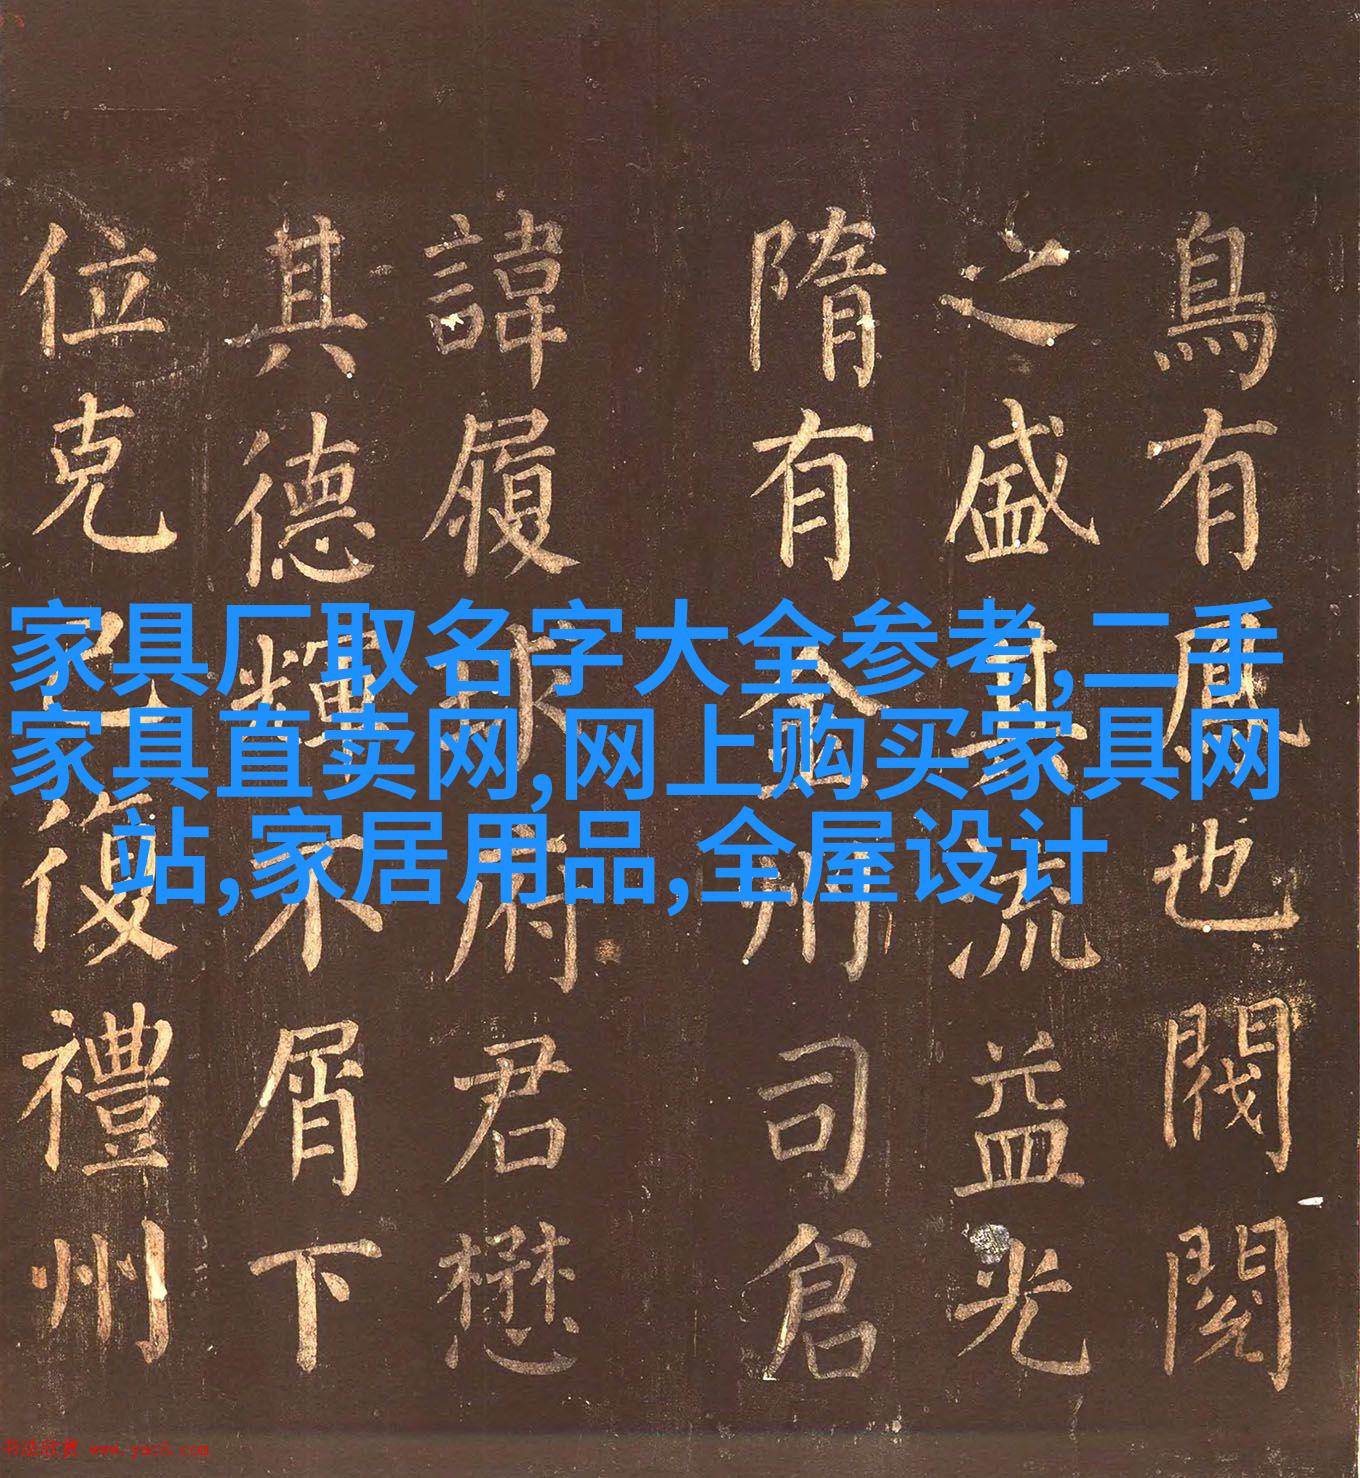 鳥有鳳也閥閱
之盛其流益光
隋有金州司倉
諱履府君懋
其德輝不屑下
位克己復禮州
家具厂取名字大全参考,二手
家具直卖网,网上购买家具网
站,家居用品,全屋设计
书法欣赏 www.yac8.com